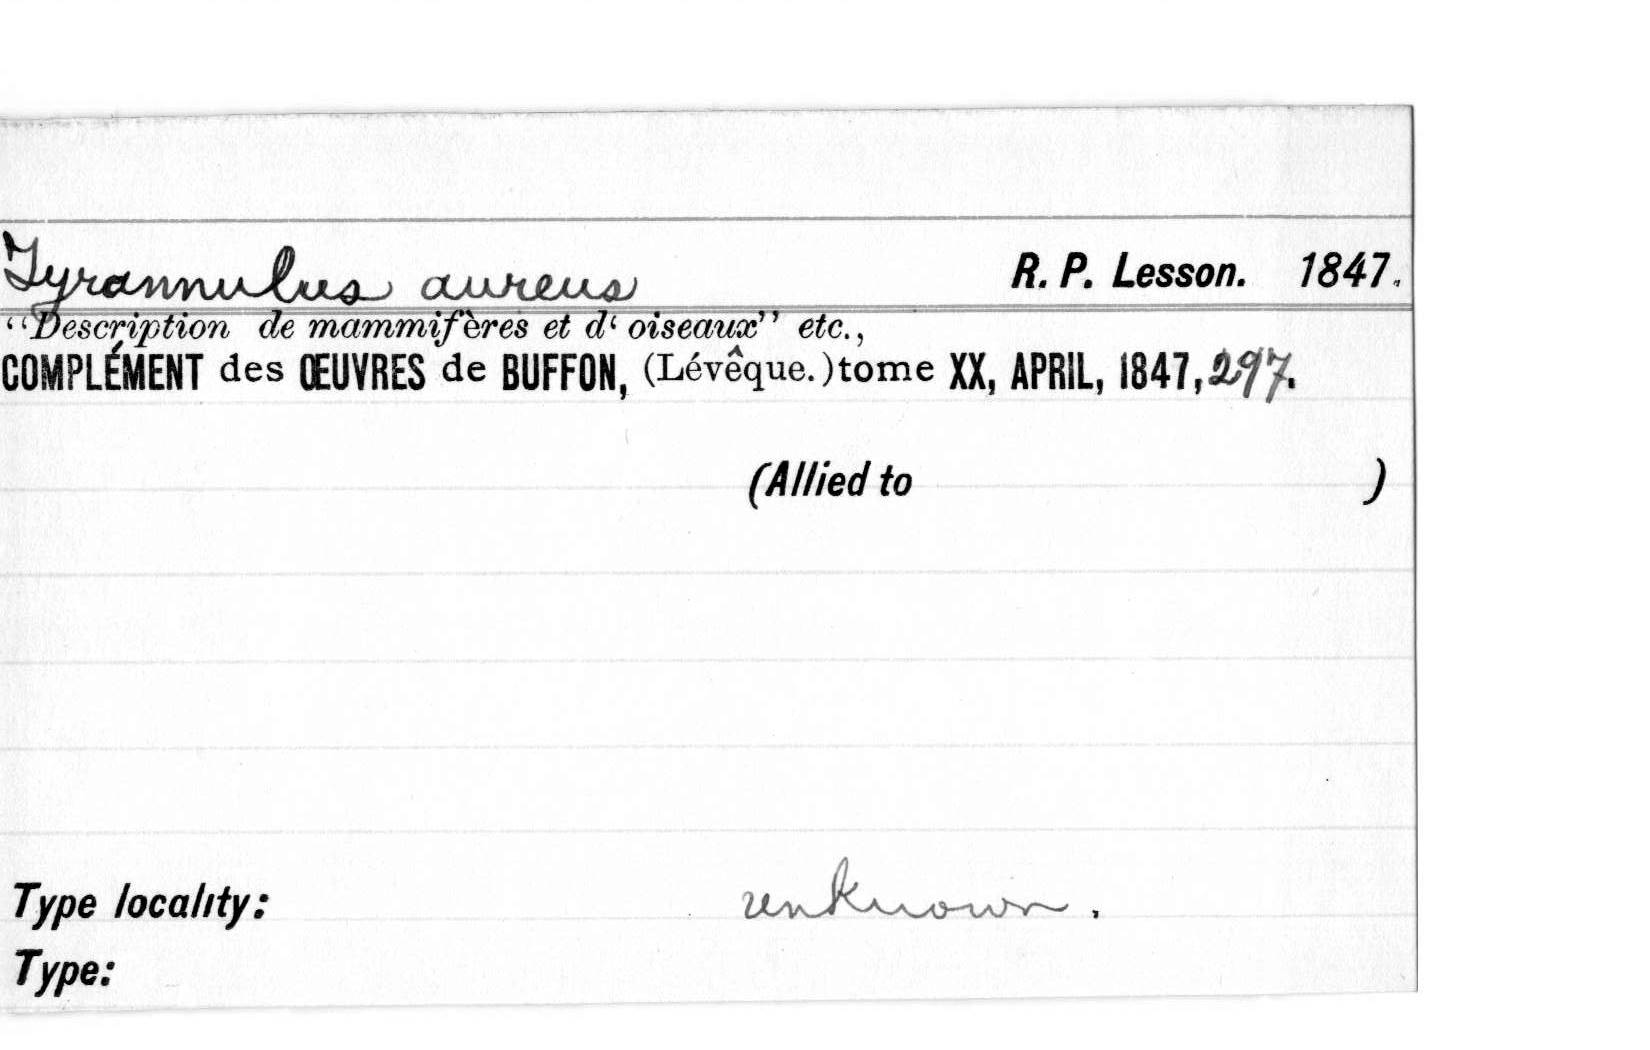 Tyrannulus aureus R. P. Lesson. 1847.
“Description de mammifères et d‘ oiseaux” etc.,
COMPLÉMENT des ŒUVRES de BUFFON, (Lévêque.) tome XX, APRIL, 1847, 297.
(Allied to )
Type locality: unknown.
Type: